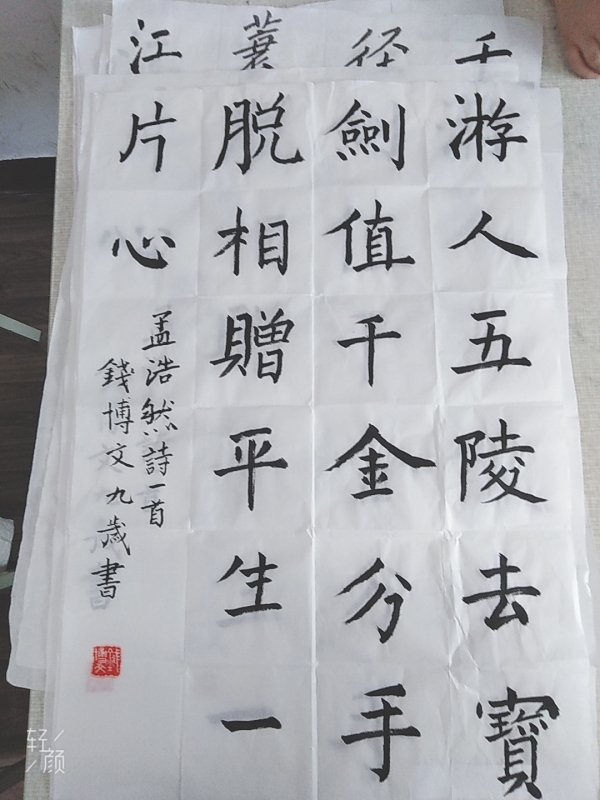 千
径
蓑
江
游人五陵去寶
劍值千金分手
脱相贈平生一
片心
孟浩然詩一首
錢博文九歲書
轻颜